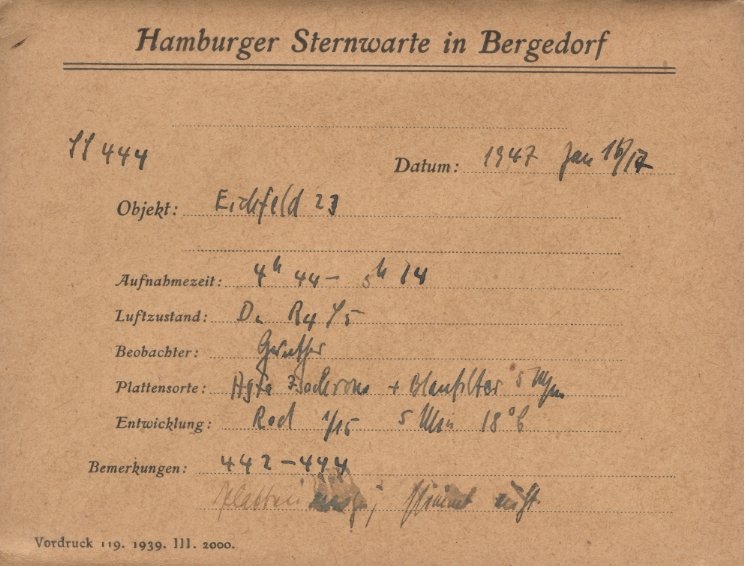 Hamburger Sternwarte in Bergedorf
444
Datum: 1947 Jan 16/17
Objekt: Eichfeld 23
Aufnahmezeit: 4h 44 – 5h 14
Luftzustand:
Beobachter:
Plattensorte: Agfa Isochrom + Blaufilter
Entwicklung: Rod 1/15 5 Min 18°C
Bemerkungen: 442 – 444
nicht
Vordruck 119. 1939. III. 2000.